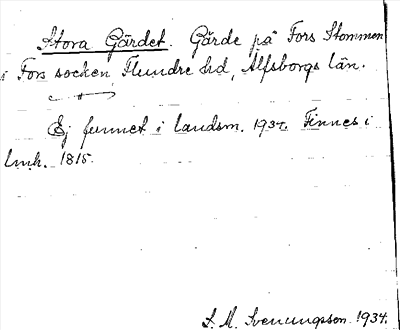 Stora Gärdet. Gärde på Fors Stommen
i Fors socken, Flundre hd, Älfsborgs län.
Ej funnet i landsm. 1934. Finnes i
lmh. 1815.
S. M. Svenungsson 1934.